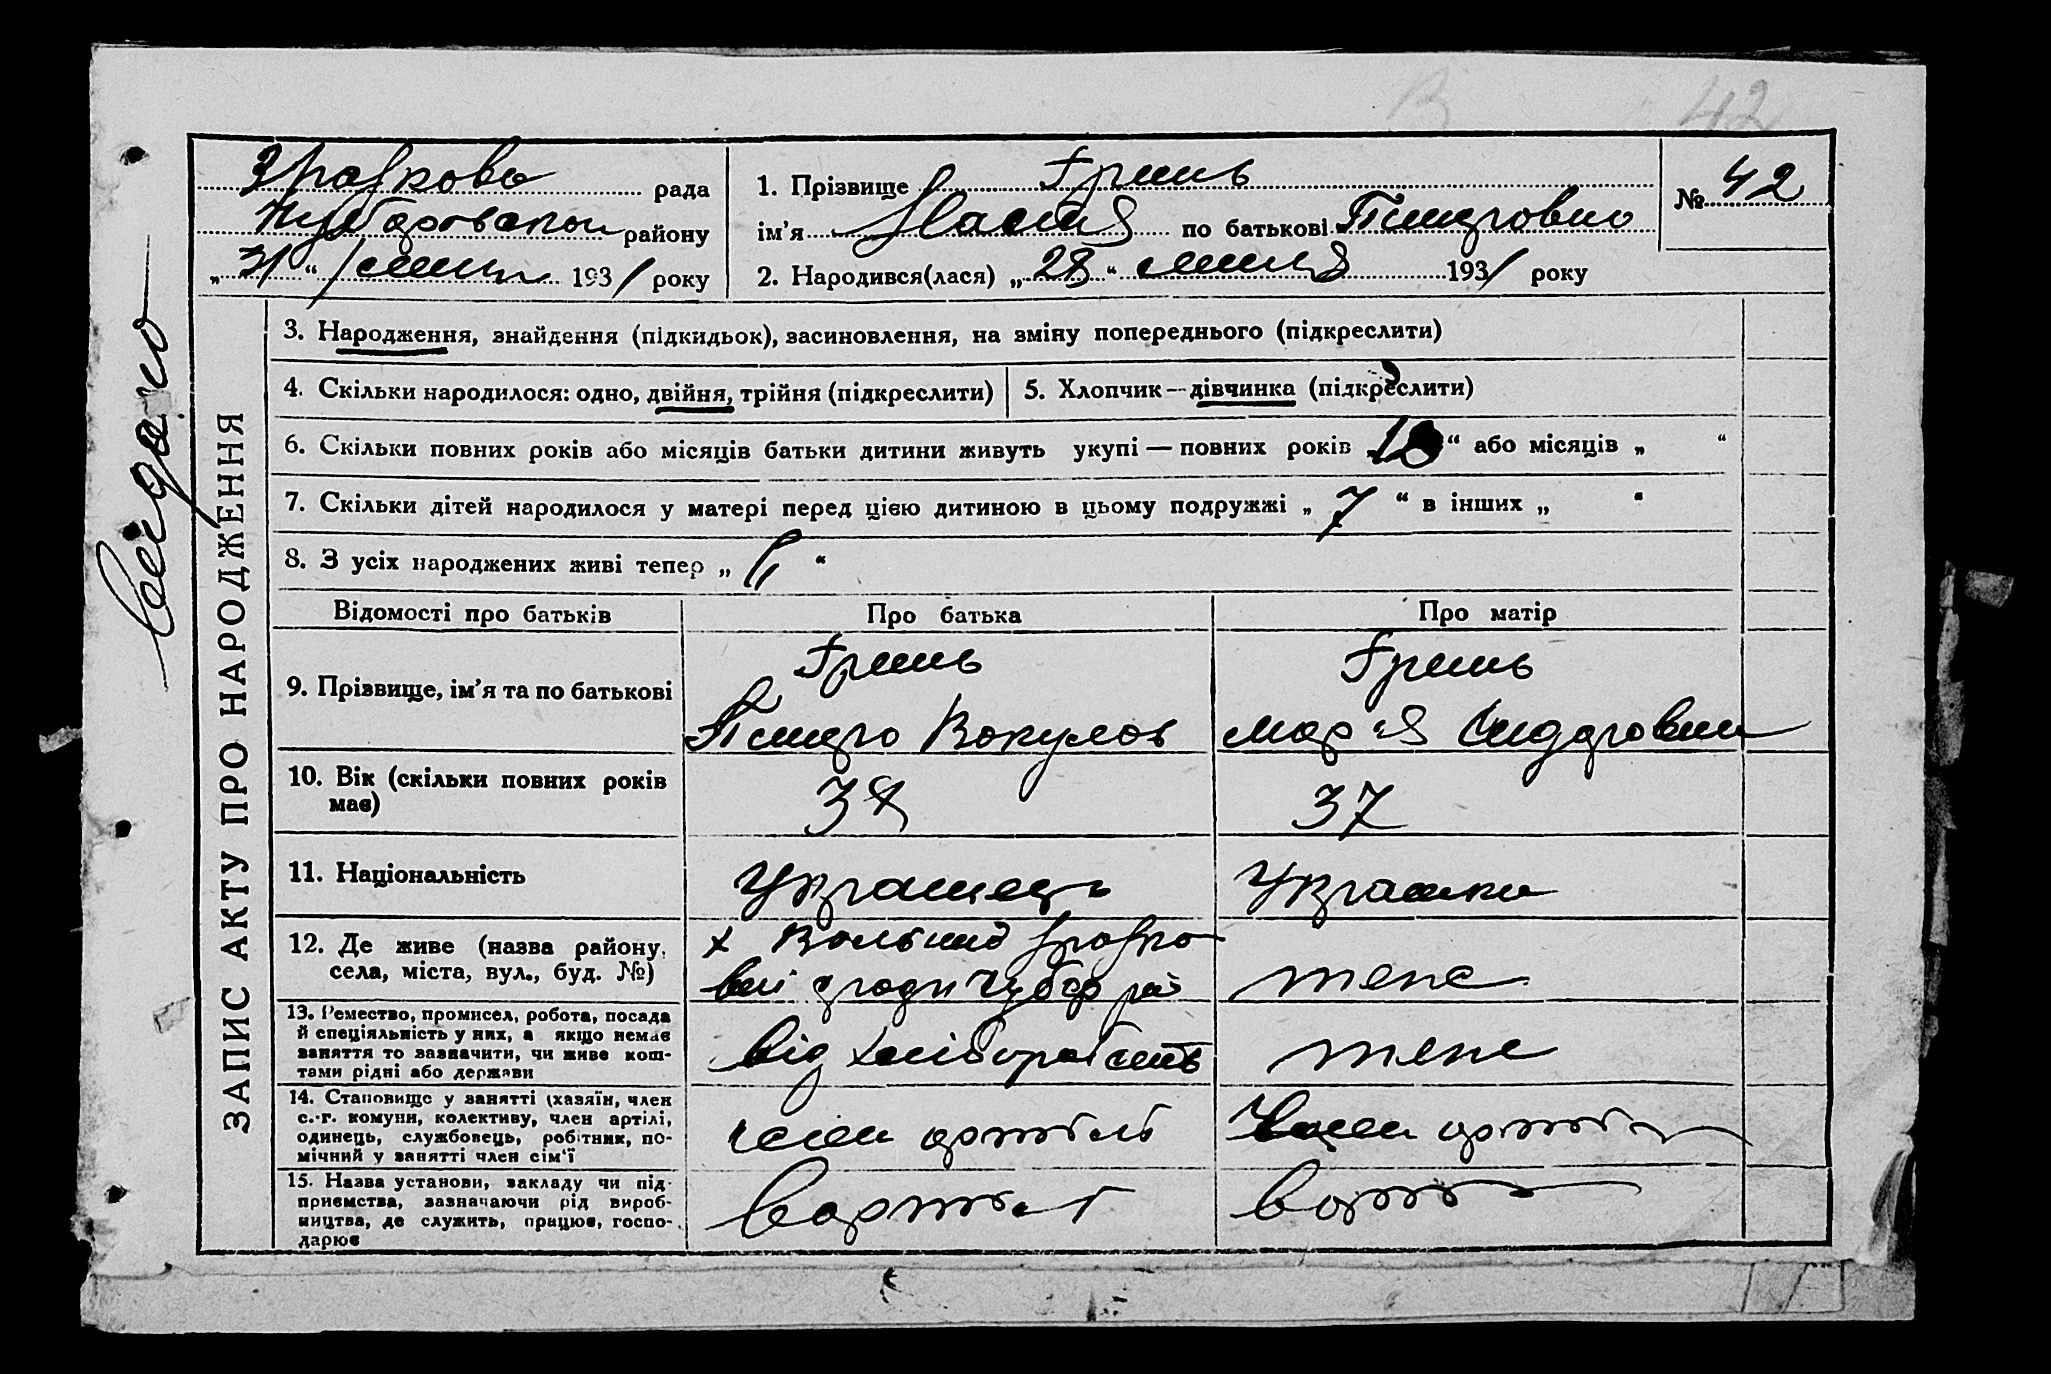 42
рада
району
„ 31 “ липня 1931 року
1. Прізвище Гринь
ім'я Настя по батькові Пилиповна
2. Народився(лася) „ 28 “ липня 1931 року
№ 42
видано
ЗАПИС АКТУ ПРО НАРОДЖЕННЯ
3. Народження, знайдення (підкидьок), засиновлення, на зміну попереднього (підкреслити)
4. Скільки народилося: одно, двійня, трійня (підкреслити)
5. Хлопчик—дівчинка (підкреслити)
6. Скільки повних років або місяців батьки дитини живуть укупі — повних років „ “ або місяців „ “
7. Скільки дітей народилося у матері перед цією дитиною в цьому подружжі „ 7 “ в інших „ “
8. З усіх народжених живі тепер „ “
Відомості про батьків
Про батька
Про матір
9. Прізвище, ім'я та по батькові
Гринь
Гринь
Мар'я
10. Вік (скільки повних років
має)
38
37
11. Національність
Українець
Українка
12. Де живе (назва району,
села, міста, вул., буд. №)
х
теж
13. Ремество, промисел, робота, посада
й спеціяльність у них, а якщо немає
заняття то зазначити, чи живе кош-
тами рідні або держави
від хліборобства
теж
14. Становище у занятті (хазяїн, член
с.-г. комуни, колективу, член артілі,
одинець, службовець, робітник, по-
мічний у занятті член сім'ї
член артілі
член артілі
15. Назва установи, закладу чи під-
приємства, зазначаючи рід вироб-
ництва, де служить, працює, госпо-
дарює
в артілі
в артілі